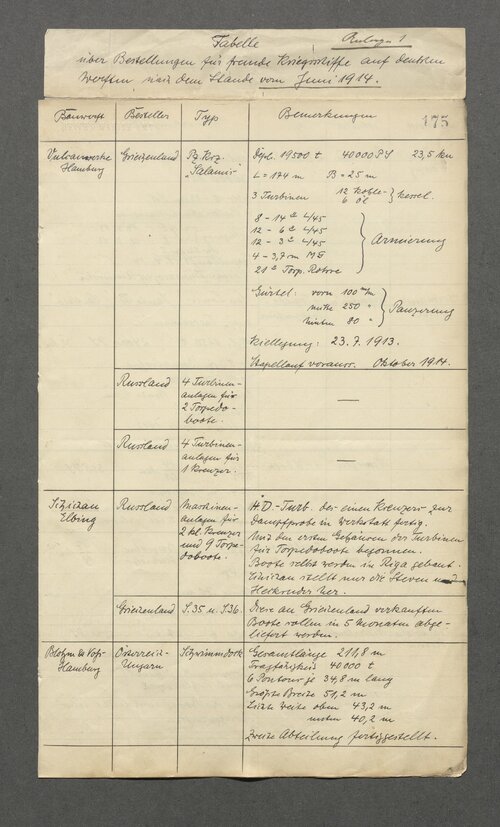 Tabelle
Anlage 1
über Bestellungen für fremde Kriegsschiffe auf deutschen
Werften nach dem Stande vom Juni 1914.
Bauwerft Besteller Typ Bemerkungen
175
Vulcanwerke
Hamburg
Griechenland
Pz. Krz.
"Salamis"
Depl. 19500 t 40000 PS 23,5 kn
L = 174 m B = 25 m
3 Turbinen 12 Kohle- 6 Öl } kessel.
8 – 14 L/45
12 – 6 L/45
12 – 3 L/45
4 – 3,7 cm MG
21 Torp. Rohre
Armierung
Gürtel: vorn 100 m/m
mitte 250 "
hinten 80 "
Panzerung
Kiellegung: 23.7.1913.
Stapellauf vorauss. Oktober 1914.
Russland
4 Turbinen-
anlagen für
2 Torpedo-
boote.
—
Russland
4 Turbinen-
anlagen für
1 Kreuzer.
—
Schichau
Elbing
Russland
Maschinen-
anlagen für
2 kl. Kreuzer
und 9 Torpe-
doboote.
H.D-Turb. des einen Kreuzers zur
Dampfprobe in Werkstatt fertig.
Mit den ersten Gehäusen der Turbinen
für Torpedoboote begonnen.
Boote selbst werden in Riga gebaut.
Schichau stellt nur die Steven und
Heckruder her.
Griechenland
S.35 u. S36.
Diese an Griechenland verkauften
Boote sollen in 5 Monaten abge-
liefert werden.
Blohm & Voß-
Hamburg
Österreich-
Ungarn
Schwimmdock
Gesamtlänge 211,8 m
Tragfähigkeit 40000 t
6 Pontons je 34,8 m lang
Größte Breite 51,2 m
Lichte Weite oben 43,2 m
unten 40,2 m
Zweite Abteilung fertiggestellt.